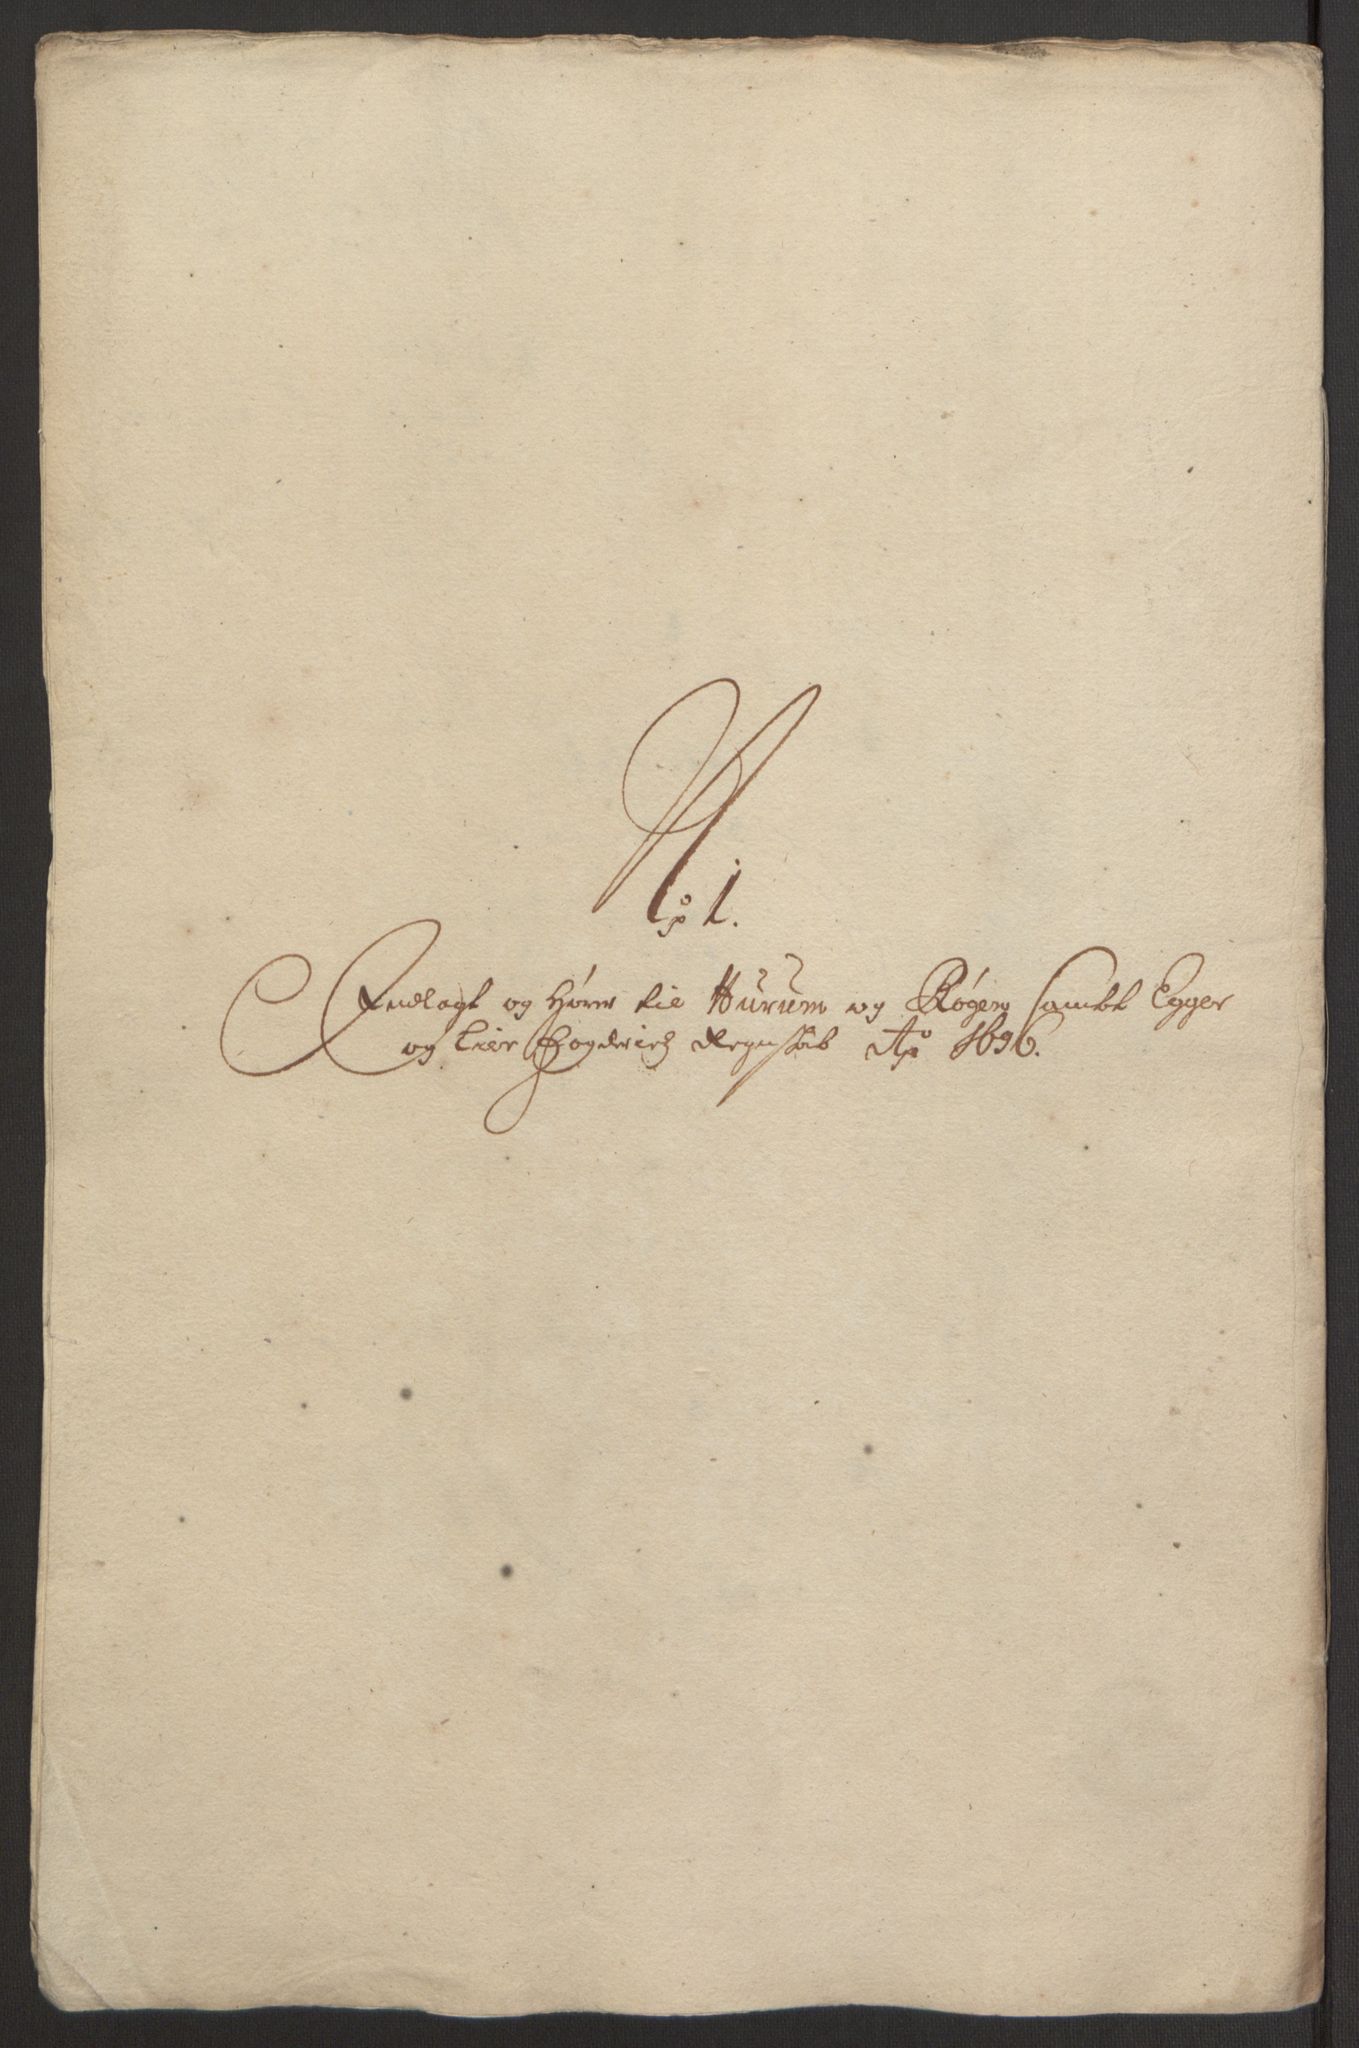 No 1.
Indlagt og hører til Hurum og Røgen samt Egger
og Lier Fogderiets Regnskab Ao 1696.